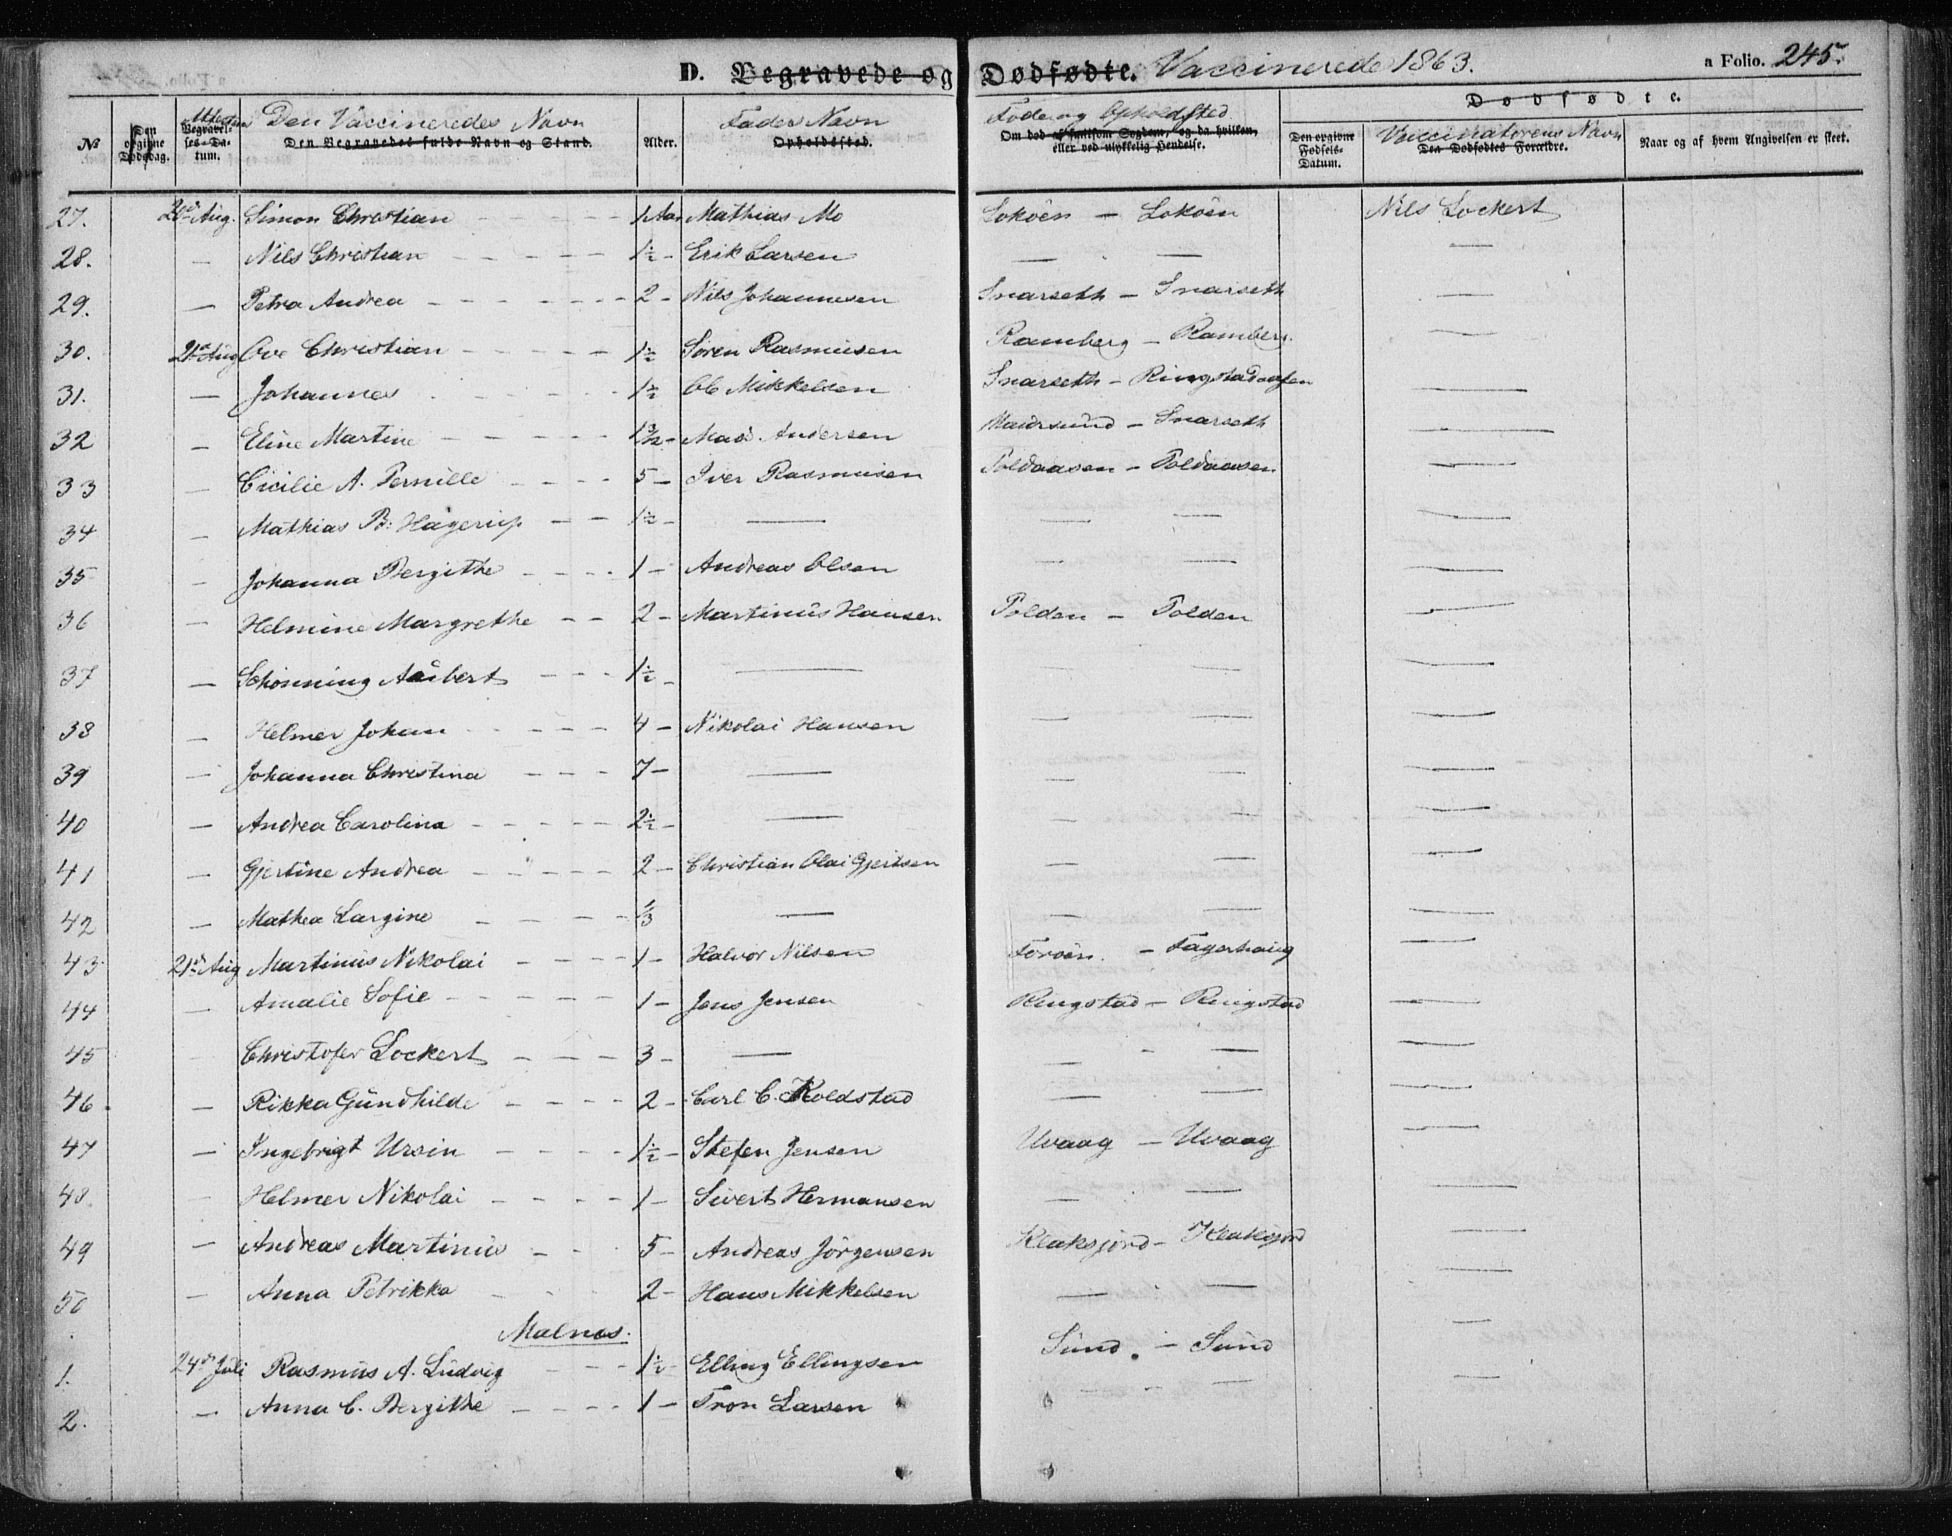 D. Begravede og Dødfødte. Vaccinerede 1863. a Folio. 245.
No Den opgivne Dødsdag. Begravelses-Datum. Den Vaccineredes Navn Den Begravedes fulde Navn og Stand. Alder. Fader Navn Opholdssted. Føde og Opholdsted Om død af smitsom Sygdom, og da hvilken, eller ved ulykkelig Hendelse. Dødfødte. Den opgivne Fødsels-Datum. Vaccinatorens Navn Den Dødfødtes Forældre. Naar og af hvem Angivelsen er skeet.
27. 20de Aug. Simon Christian - - - - 1 Aar Mathias Mo Lokøen — Lokøen Nils Lockert
28. — Nils Christian - - - - 1½ - Erik Larsen — — —
29. — Petra Andrea - - - - 2 - Nils Johannesen Snarseth — Snarseth —
30. 21de Aug Ove Christian - - - - 1½ Søren Rasmussen Ramberg — Ramberg. —
31. — Johannes 1½ Ole Mikkelsen Snarseth - Ringstadaasen —
32 — Eline Martine - - - - Mads Andersen — Snarseth —
33 — Cicilie A. Pernille - - - - 5 - Iver Rasmusen Poldaasen — Poldaasen —
34 — Mathias B. Hagerup - - 1½ - — — — —
35 — Johanna Bergithe - - - - 1 - Andreas Olsen — — —
36 — Helmine Margrethe - - 2 - Martinus Hansen Polden — Polden —
37 — Schønning Aubert - - - 1½ - — — — —
38 — Helmer Johan - - - - 4 - Nikolai Hansen — — —
39 — Johanna Christina - - - 7 - — — — —
40 — Andrea Carolina - - - - 2½ - — — — —
41 — Gjertine Andrea - - - - 2 - Christian Olai Gjertsen — — —
42 — Mathea Largine - - - ⅓ — — — —
43 21de Aug Martinus Nikolai - - - - 1 - Halvor Nilsen Forøen. — Fagerhaug —
44 — Amalie Sofie - - - - 1 - Jens Jensen Ringstad — Ringstad —
45 — Christofer Lockert - - - 3 - — — — —
46. — Rikka Gundhilde - - - - 2 - Carl C. Koldstad — — —
47 — Ingebrigt Ursin - - - - 1½ - Stefen Jensen Uvaag — Uvaag —
48. — Helmer Nikolai - - - - 1 - Sivert Hermansen — — —
49 — Andreas Martinus - - 5 - Andreas Jørgensen Klaksjord — Klaksjord —
50 — Anna Petrikka - - 2 - Hans Mikkelsen — — —
Malnes.
1. 24de Juli Rasmus A. Ludvig - - - 1½ - Elling Ellingsen Sund. — Sund —
2. — Anna C. Bergithe - - - - 1 - Tron Larsen — — —